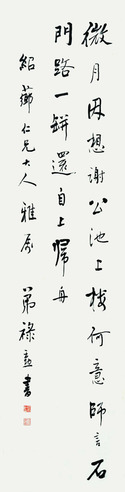 微月因想謝公池上樓何意師言石
門路一缾還自上歸舟
紹蘅仁兄大人雅屬
弟祿書